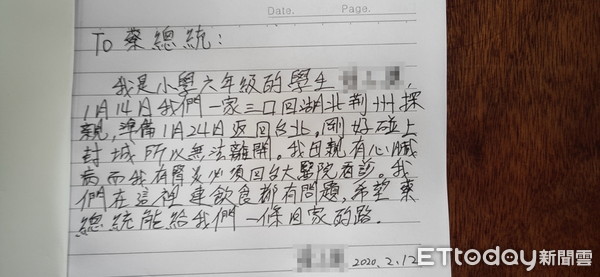 Date. Page.
To 蔡總統：
我是小學六年級的學生
1月14日我們一家三口回湖北荆州探
親，準備1月24日返回台北，剛好碰上
封城所以無法離開。我母親有心臟
病而我有腎炎必須回台大醫院看診。我
們在這裡連飲食都有問題，希望蔡
總統能給我們一條回家的路.
2020.2.12
ETtoday新聞雲